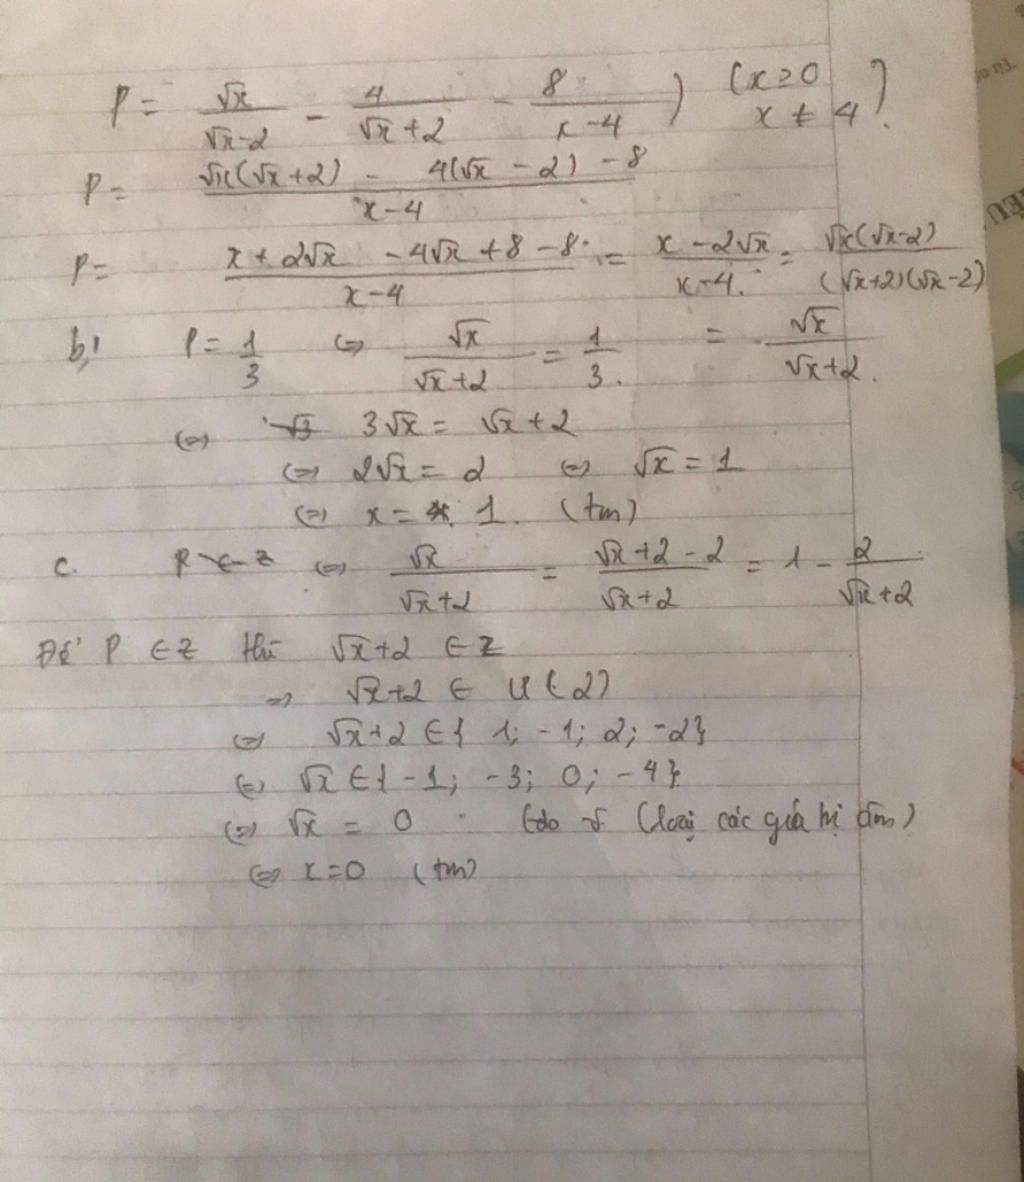 P = √x/(√x-2) - 4/(√x+2) - 8/(x-4) ) (x≥0 x≠4).
P = (√x(√x+2) - 4(√x-2) - 8)/(x-4)
P = (x+2√x - 4√x+8-8)/(x-4) = (x-2√x)/(x-4) = √x(√x-2)/((√x+2)(√x-2))
= √x/(√x+2).
b, P = 1/3 <=> √x/(√x+2) = 1/3.
<=> 3√x = √x+2
<=> 2√x = 2 <=> √x = 1
<=> x = 1. (tm)
c. P ∈ Z <=> √x/(√x+2) = (√x+2-2)/(√x+2) = 1 - 2/(√x+2)
Để P ∈ Z thì √x+2 ∈ Z
=> √x+2 ∈ Ư(2)
<=> √x+2 ∈ { 1; -1; 2; -2}
<=> √x ∈ { -1; -3; 0; -4}
<=> √x = 0 (loại các giá trị âm)
<=> x=0 (tm)